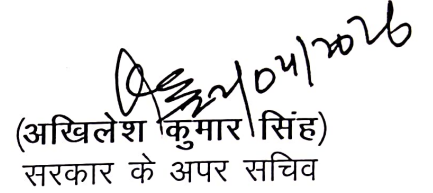 04/2026
(अखिलेश कुमार सिंह)
सरकार के अपर सचिव